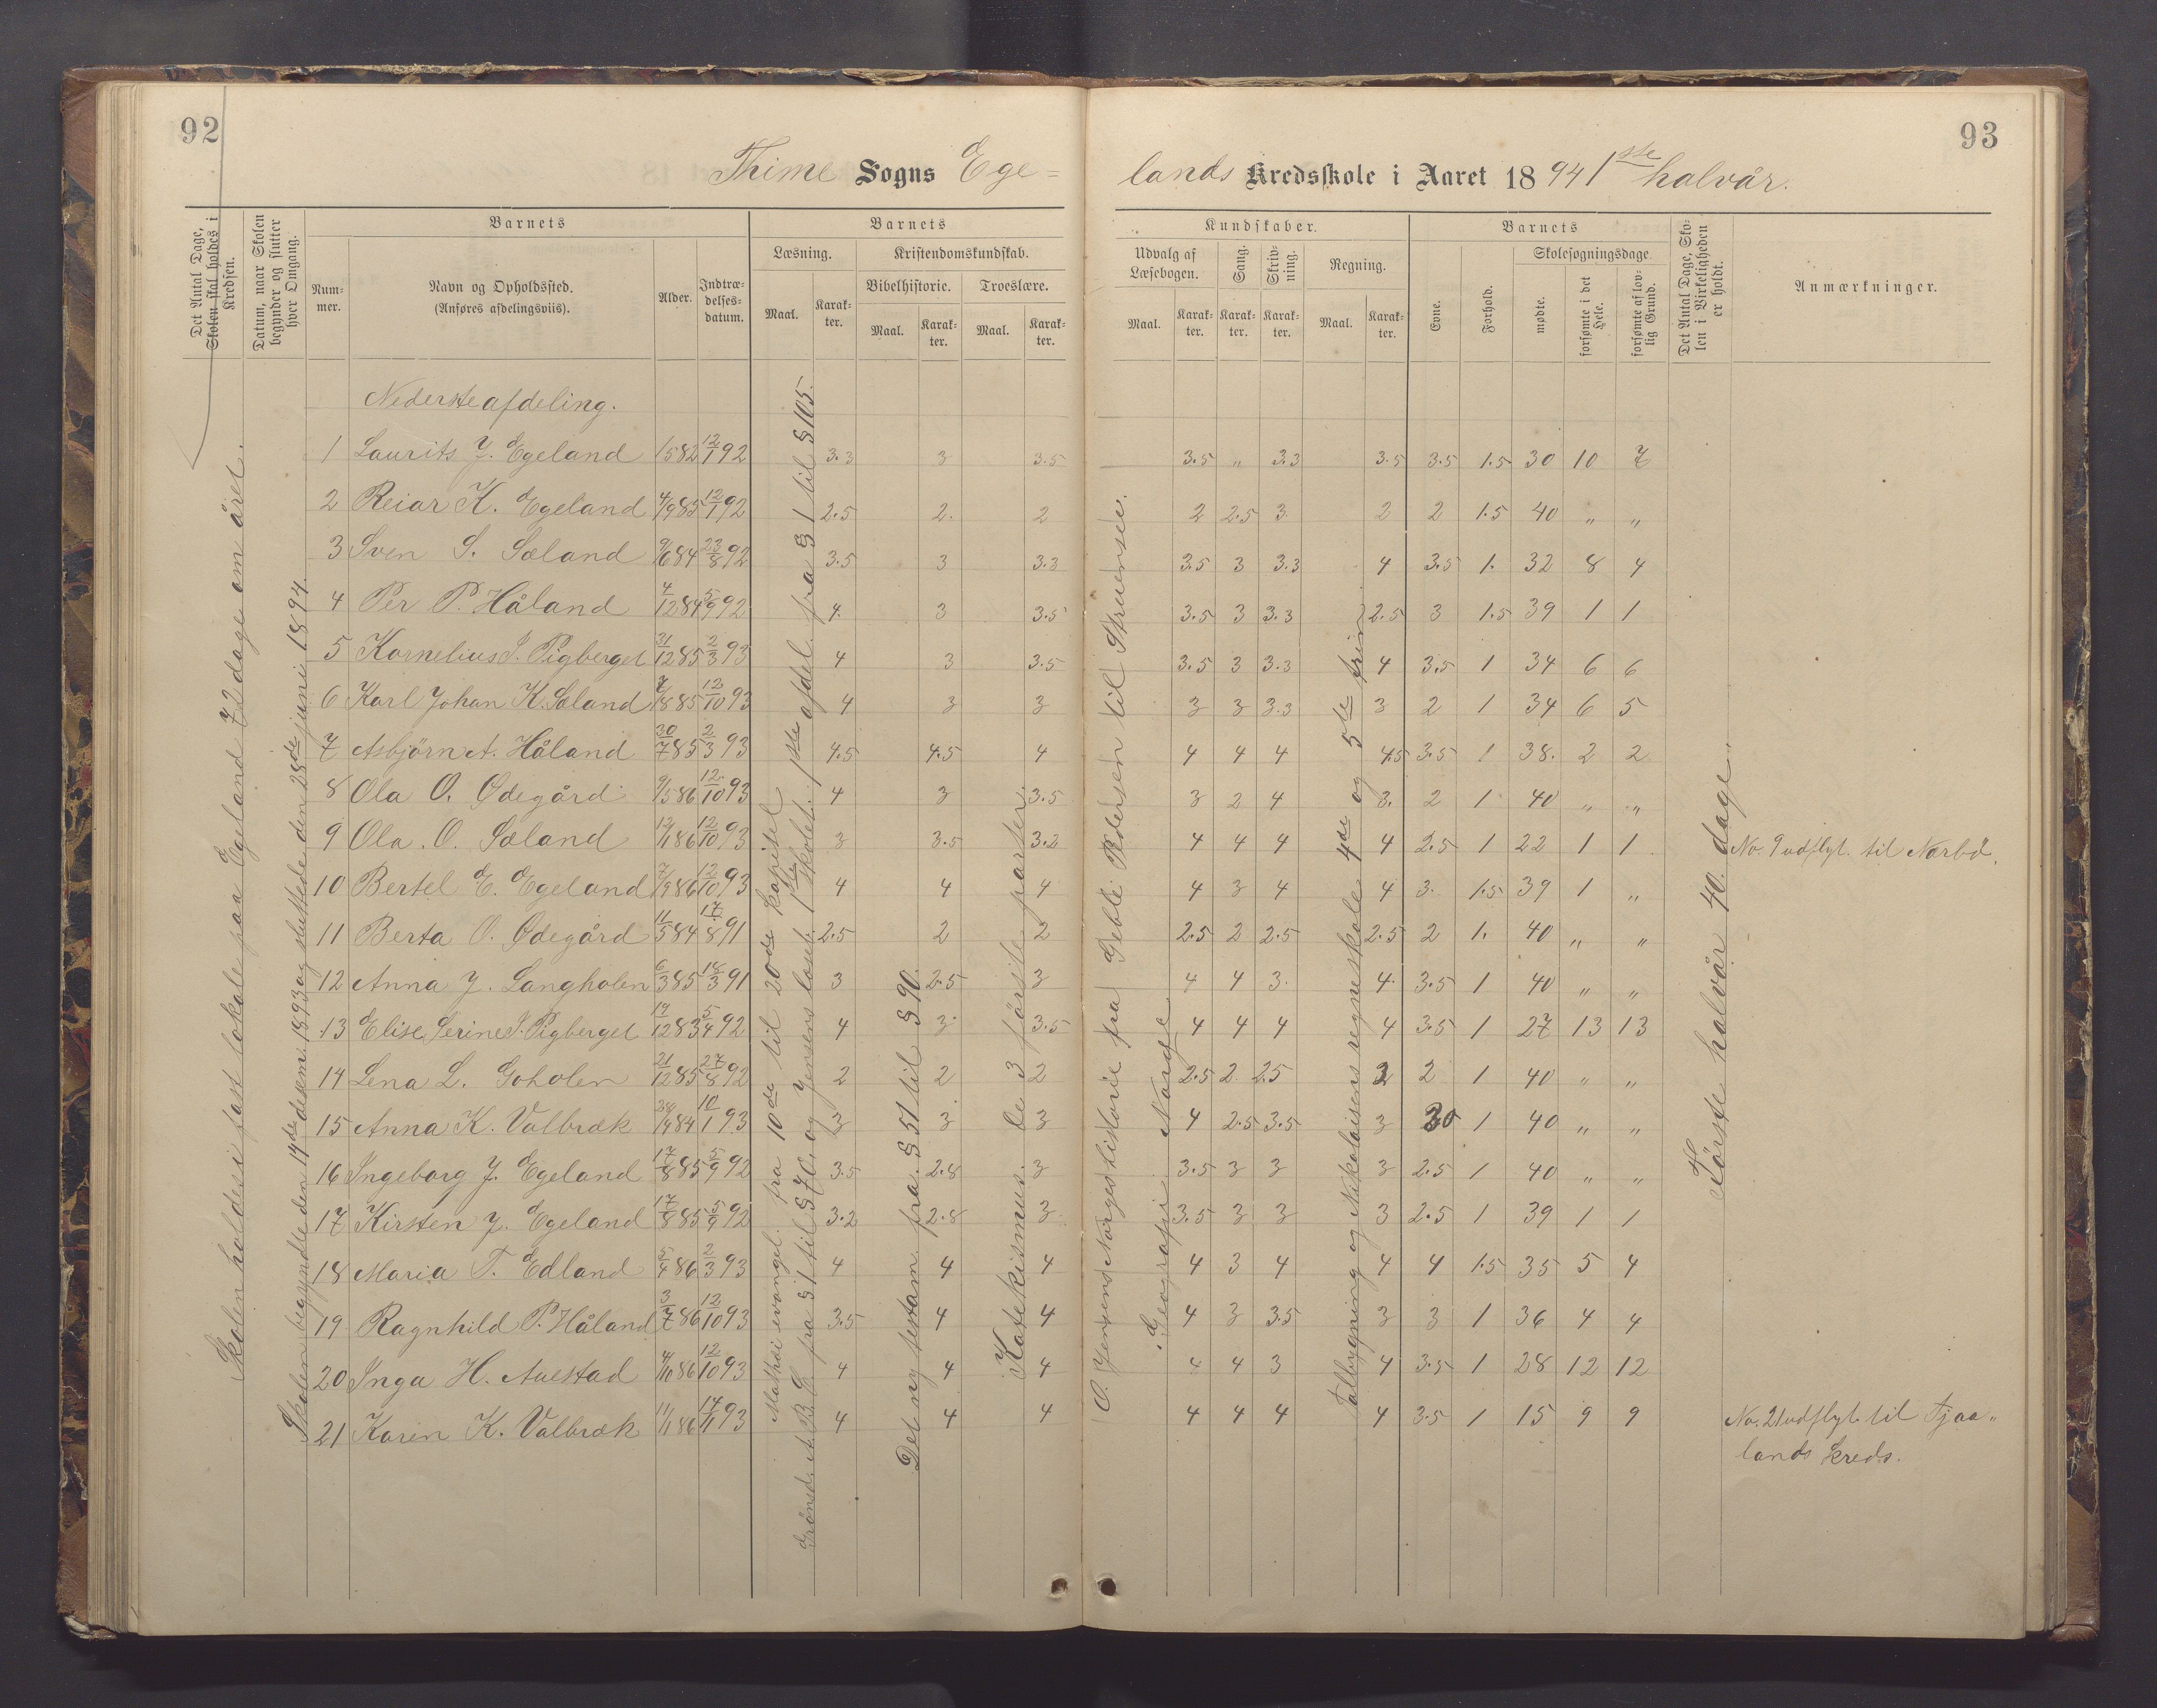 92
93
Thime Sogns Ege=
lands Kredsskole i Aaret 1894 1ste halvår.
Det Antal Dage, Skolen skal holdes i Kredsen.
Datum, naar Skolen begynder og slutter hver Omgang.
Barnets
Num-mer.
Navn og Opholdssted.
(Anføres afdelingsviis).
Alder.
Indtræ-delses-datum.
Barnets
Læsning.
Maal.
Karak-ter.
Kristendomskundskab.
Bibelhistorie.
Maal.
Karak-ter.
Troeslære.
Maal.
Karak-ter.
Kundskaber.
Udvalg af Læsebogen.
Maal.
Karak-ter.
Sang.
Karak-ter.
Skriv-ning.
Karak-ter.
Regning.
Maal.
Karak-ter.
Barnets
Evne.
Forhold.
Skolesøgningsdage
mødte.
forsømte i det Hele.
forsømte af lov-lig Grund.
Det Antal Dage, Sko-len i Virkeligheden er holdt.
Anmærkninger.
Skolen holdes i fast lokale paa Egeland 72 dage om året.
Skolen begyndte den 14de desem. 1893 og sluttede den 28de juni 1894.
Nederste afdeling.
1 Laurits J. Egeland 1/5 82 12/1 92 3.3 3 3.5 3.5 " 3.3 3.5 3.5 1.5 30 10 7
2 Reiar K. Egeland 4/9 85 12/1 92 2.5 2. 2 2 2.5 3 2 2 1.5 40 " "
3 Sven S. Sæland 9/6 84 23/8 92 3.5 3 3.3 3.5 3 3.3 4 3.5 1. 32 8 4
4 Per P. Håland 4/12 84 5/9 92 4. 3 3.5 3.5 3 3.3 2.5 3 1.5 39 1 1
5 Kornelius S. Pigberget 31/12 85 2/3 93 4 3 3.5 3.5 3 3.3 4 3.5 1 34 6 6
6 Karl Johan K. Sæland /8 85 12/10 93 4 3 3 3 3 3.3 3 2 1 34 6 5
7 Asbjörn A. Håland 30/7 85 2/3 93 4.5 4.5 4 4 4 4 4.5 3.5 1 38. 2 2
8 Ola O. Ødegård 9/5 86 12/10 93 4 3 3.5 3 2 4 3. 2 1 40 " "
9 Ola. O. Sæland 12/1 86 12/10 93 3 3.5 3.2 4 4 4 4 2.5 1 22 1 1 No. 9 udflyt. til Nærbö.
10 Bertel E. Egeland 7/9 86 12/10 93 4 4 4 4 3 4 4 3. 1.5 39 1 "
11 Berta O. Ødegård 11/5 84 17/8 91 2.5 2 2 2.5 2 2.5 2.5 2 1. 40 " "
12 Anna J. Langholen 6/3 85 18/3 91 3 2.5 3 4 4 3. 4. 3.5 1 40 " "
13 Elise Serine S. Pigberget 19/12 83 5/4 92 4 3 3.5 4 4 4 4 3.5 1 27 13 13
14 Lena L. Goholen 21/12 85 27/8 92 2 2 2 2.5 2 2.5 2 2 1 40 " "
15 Anna K. Valbræk 84 10/1 93 3 3 3 4 2.5 3.5 3 1 40 " "
16 Ingeborg J. Egeland 17/8 85 5/9 92 3.5 2.8 3 3.5 3 3 3 2.5 1 40 " "
17 Kirsten J. Egeland 17/8 85 5/9 92 3.2 2.8 3 3.5 3 3 3 2.5 1 39 1 1
18 Maria T. Edland 5/4 86 2/3 93 4 4 4 4 3 4 4 4 1.5 35 5 4
19 Ragnhild P. Håland 3/7 86 12/10 93 3.5 4 4 4 3 3.5 3 3 1 36 4 4
20 Inga H. Auestad 4/10 86 12/10 93 4 4 4 4 4 3 4 3.5 1 28 12 12
21 Karen K. Valbræk 11/1 86 14/11 93 4 4 4 4 4 4 4 3.5 1 15 9 9 No. 21 udflyt. til Tjaa"
lands kreds.
Mathæi evangel. fra 10de til 20de kapitel
A. B. C. fra § 1 til § 70, og Jensens læseb. 1ste skolet. 1ste afdel. fra § 1 til § 105.
Det ny testam. fra § 51 til § 90.
Katekismus. De 3 förste parter.
O. Jensens Norgeshistorie fra Geble Pedersen til Struensee.
Geografi: Norge
Talbygning og Nikolaisens regneskole 4de og 5te trin
Förste halvår 40. dage.